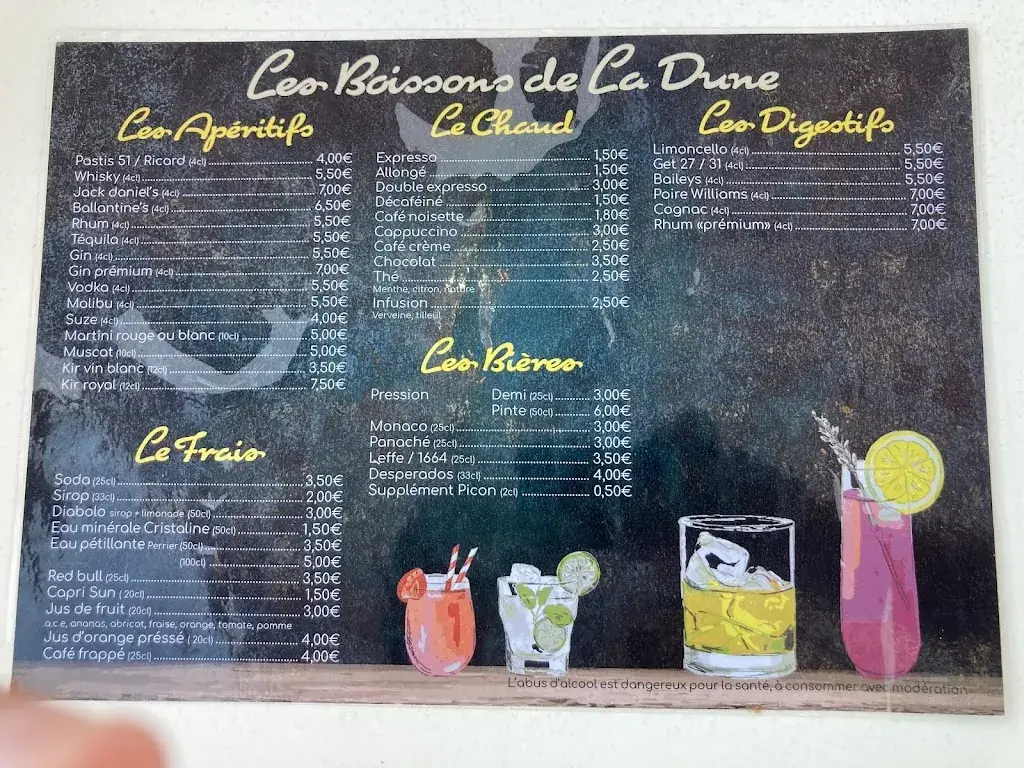 Les Boissons de La Dune
Les Apéritifs
Pastis 51 / Ricard (4cl) 4,00€
Whisky (4cl) 5,50€
Jack daniel's (4cl) 7,00€
Ballantine's (4cl) 6,50€
Rhum (4cl) 5,50€
Téquila (4cl) 5,50€
Gin (4cl) 5,50€
Gin prémium (4cl) 7,00€
Vodka (4cl) 5,50€
Malibu (4cl) 5,50€
Suze (4cl) 4,00€
Martini rouge ou blanc (10cl) 5,00€
Muscat (10cl) 5,00€
Kir vin blanc (12cl) 3,50€
Kir royal (12cl) 7,50€
Le Frais
Soda (25cl) 3,50€
Sirop (33cl) 2,00€
Diabolo sirop + limonade (50cl) 3,00€
Eau minérale Cristaline (50cl) 1,50€
Eau pétillante Perrier (50cl) 3,50€
(100cl) 5,00€
Red bull (25cl) 3,50€
Capri Sun ( 20cl) 1,50€
Jus de fruit (20cl) 3,00€
a.c.e, ananas, abricot, fraise, orange, tomate, pomme
Jus d'orange préssé ( 20cl) 4,00€
Café frappé (25cl) 4,00€
Le Chaud
Expresso 1,50€
Allongé 1,50€
Double expresso 3,00€
Décaféiné 1,50€
Café noisette 1,80€
Cappuccino 3,00€
Café crème 2,50€
Chocolat 3,50€
Thé 2,50€
Menthe, citron, nature
Infusion 2,50€
Verveine, tilleul
Les Bières
Pression Demi (25cl) 3,00€
Pinte (50cl) 6,00€
Monaco (25cl) 3,00€
Panaché (25cl) 3,00€
Leffe / 1664 (25cl) 3,50€
Desperados (33cl) 4,00€
Supplément Picon (2cl) 0,50€
Les Digestifs
Limoncello (4cl) 5,50€
Get 27 / 31 (4cl) 5,50€
Baileys (4cl) 5,50€
Poire Williams (4cl) 7,00€
Cognac (4cl) 7,00€
Rhum «prémium» (4cl) 7,00€
L'abus d'alcool est dangereux pour la santé, à consommer avec modération